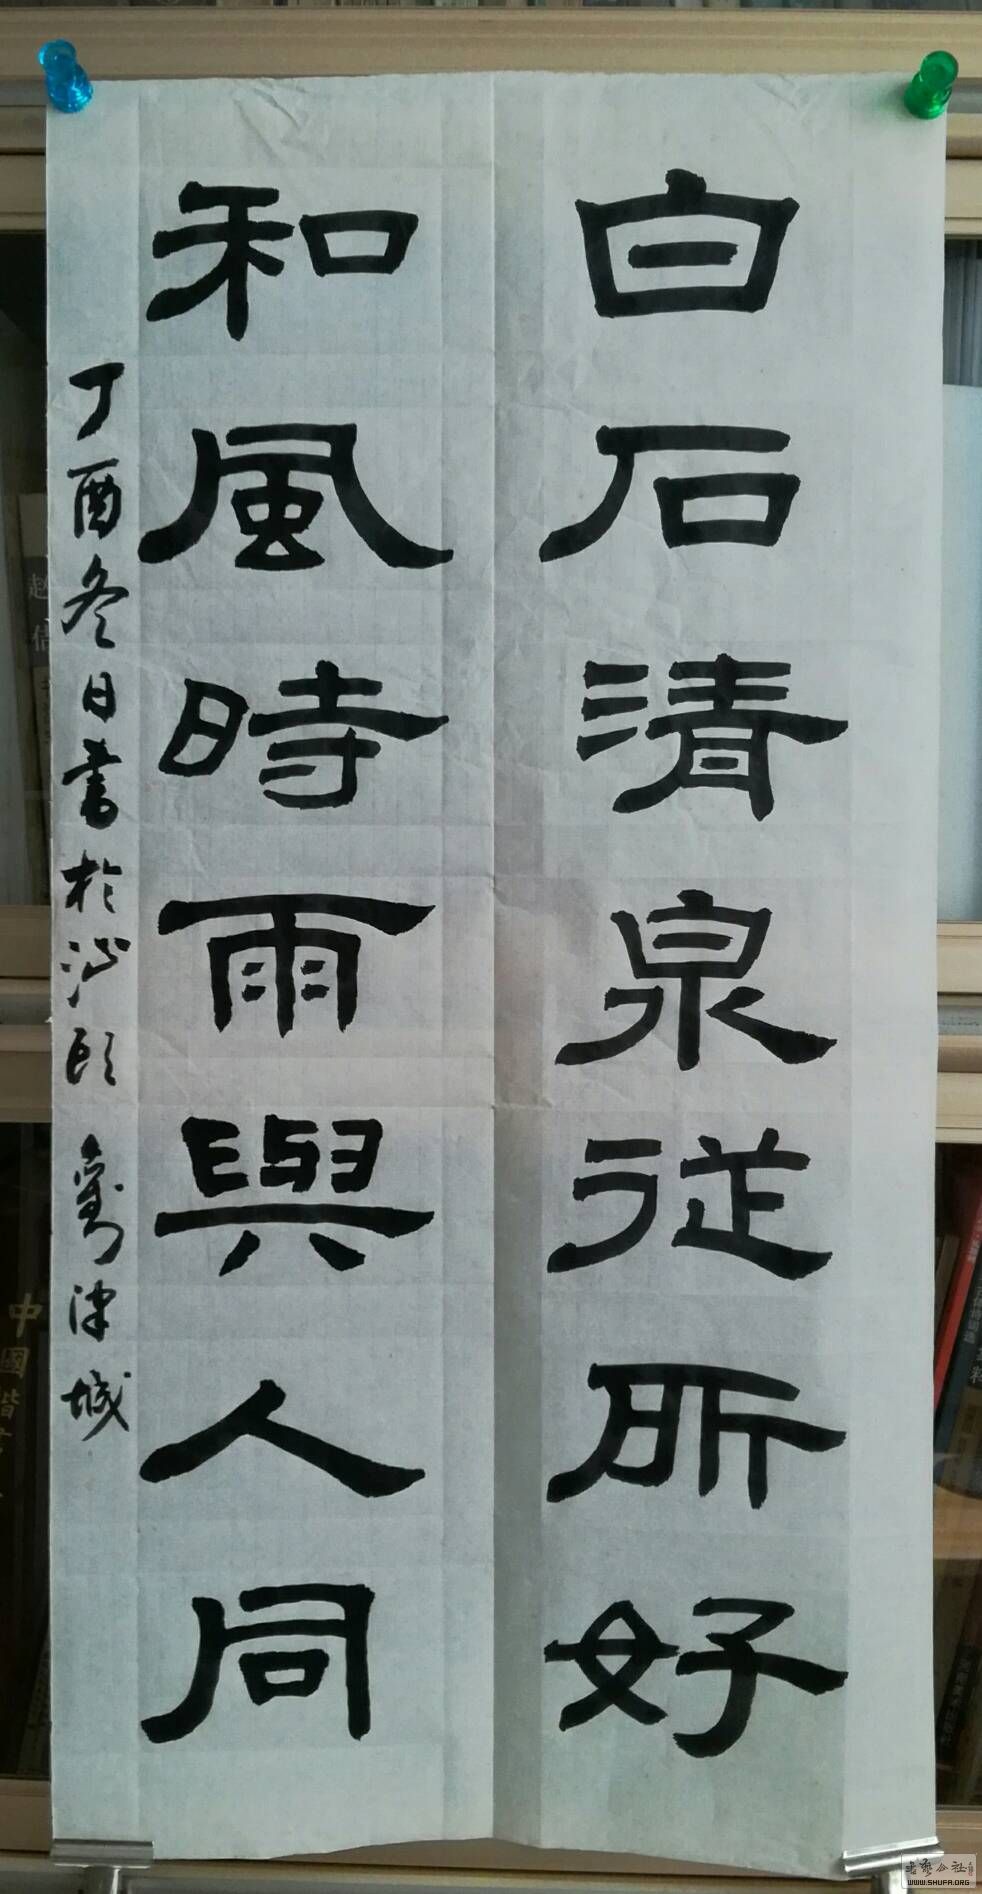 白石清泉従所好
和風時雨與人同
丁酉冬日書於沁 劉津城
中國楷書
WWW.SHUFA.ORG